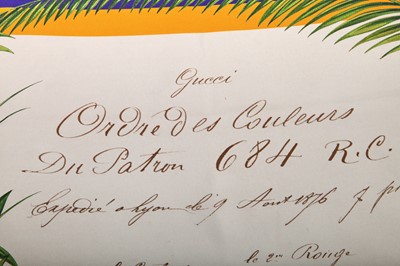 Gucci
Ordre des Couleurs
Du Patron 684 R.C.
Expedié a Lyon le 9 Aout 1876 7
le Rouge